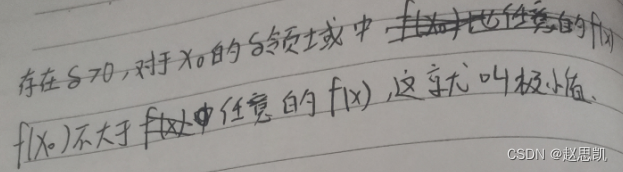 存在δ>0,对于x₀的δ领域中,f(x₀)比任意的f(x)
f(x₀)不大于f(x)中任意的f(x),这就叫极小值.
CSDN @赵思凯